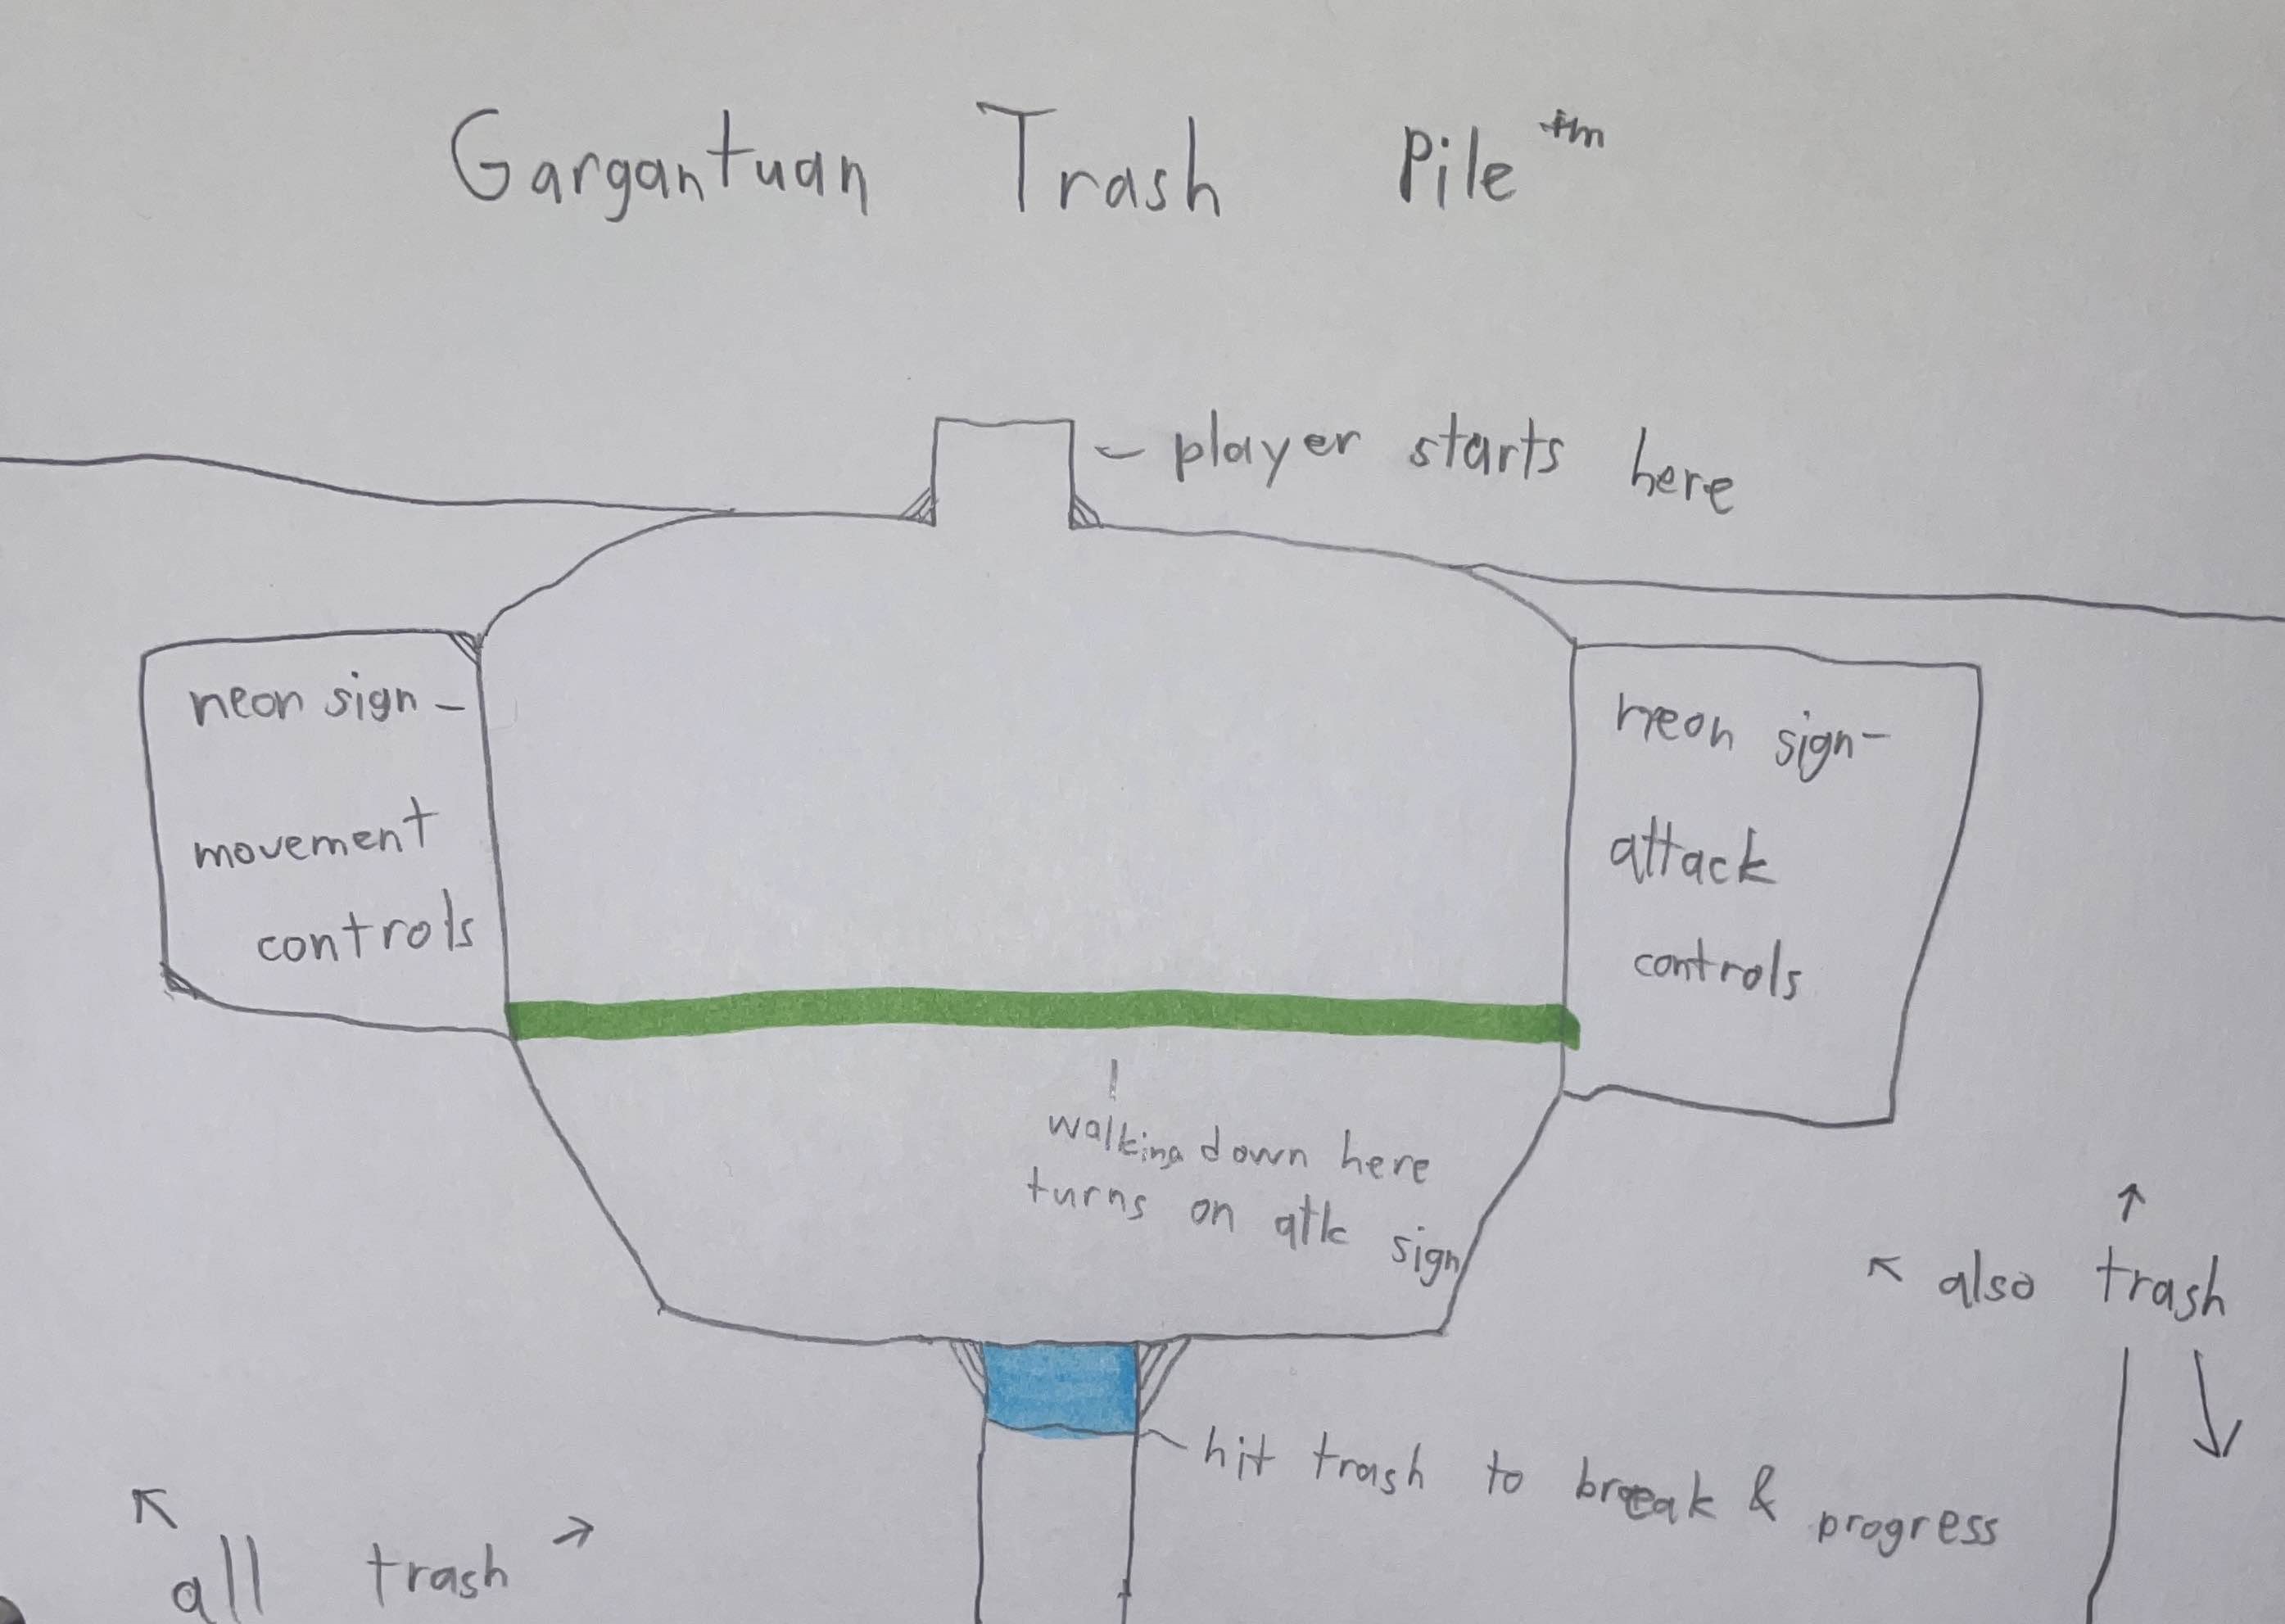 Gargantuan Trash Pile tm
player starts here
neon sign -
movement
controls
neon sign -
attack
controls
walking down here
turns on atk sign
also trash
hit trash to break & progress
all trash